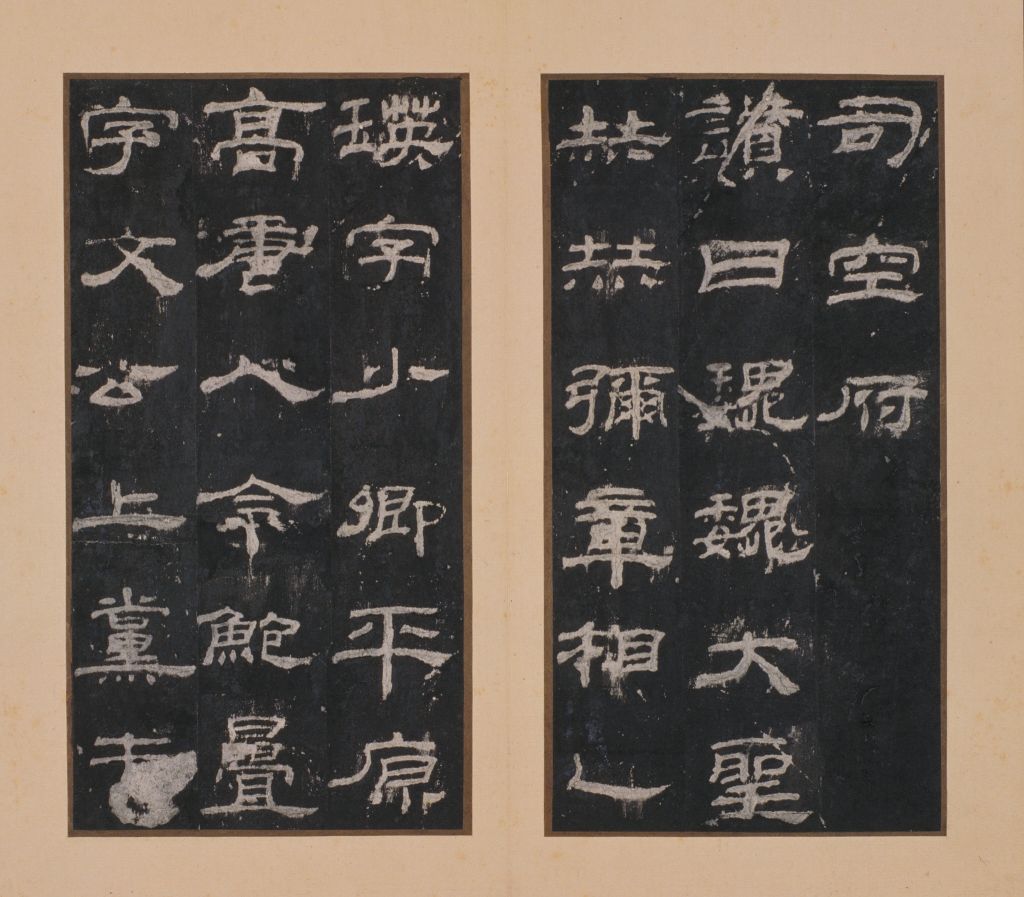 司空府
讚曰巍巍大聖
赫赫彌章相乙
瑛字少卿平原
高唐人令鮑疊
字文公上黨